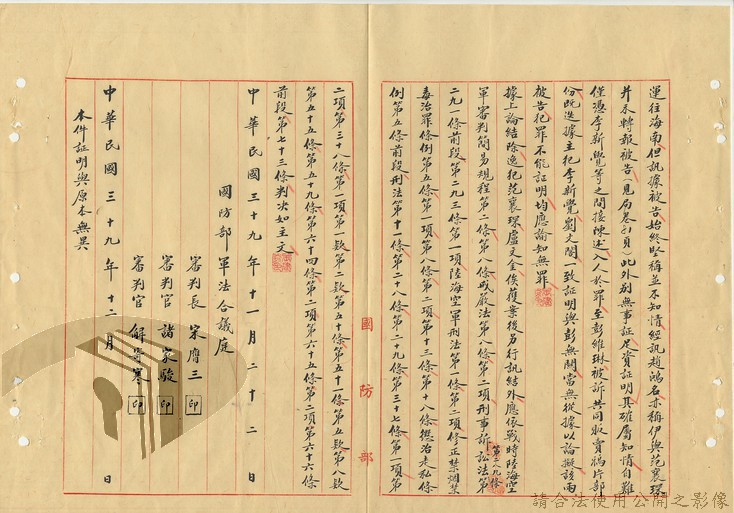 運往海南但訊據被告始終堅稱並不知情經訊趙鴻名亦稱伊與范襄琛
并未轉報被告(見局卷51頁)此外別無事証足資証明其確屬知情自難
僅憑李新覺等之間接陳述入人於罪至彭維琳被訴共同販賣鴉片部
份既迭據主犯李新覺劉文閣一致証明與彭無關當無從據以論擬該兩
被告犯罪不能証明均應諭知無罪
據上論結除逸犯范襄琛盧文全俟獲案後另行訊結外應依戰時陸海空
軍審判簡易規程第二條第八條戒嚴法第八條第二項刑事訴訟法第
第二八九條
二九一條前段第二九三條第一項陸海空軍刑法第一條第二項修正禁烟禁
毒治罪條例第五條第一項第八條第二項第十三條第十八條懲治走私條
例第五條前段刑法第十一條第二十八條第二十九條第三十七條第一項第
國防部
二項第三十八條第一項第一款第二款第五十條第五十一條第五款第八款
第五十五條第五十九條第六十四條第二項第六十五條第二項第六十六條
前段第七十三條判決如主文
中華民國三十九年十一月二十二日
國防部軍法合議庭
審判長 宋膺三 印
審判官 諸家駿 印
審判官 解
印
中華民國三十九年十二月 日
本件証明與原本無異
請合法使用公開之影像